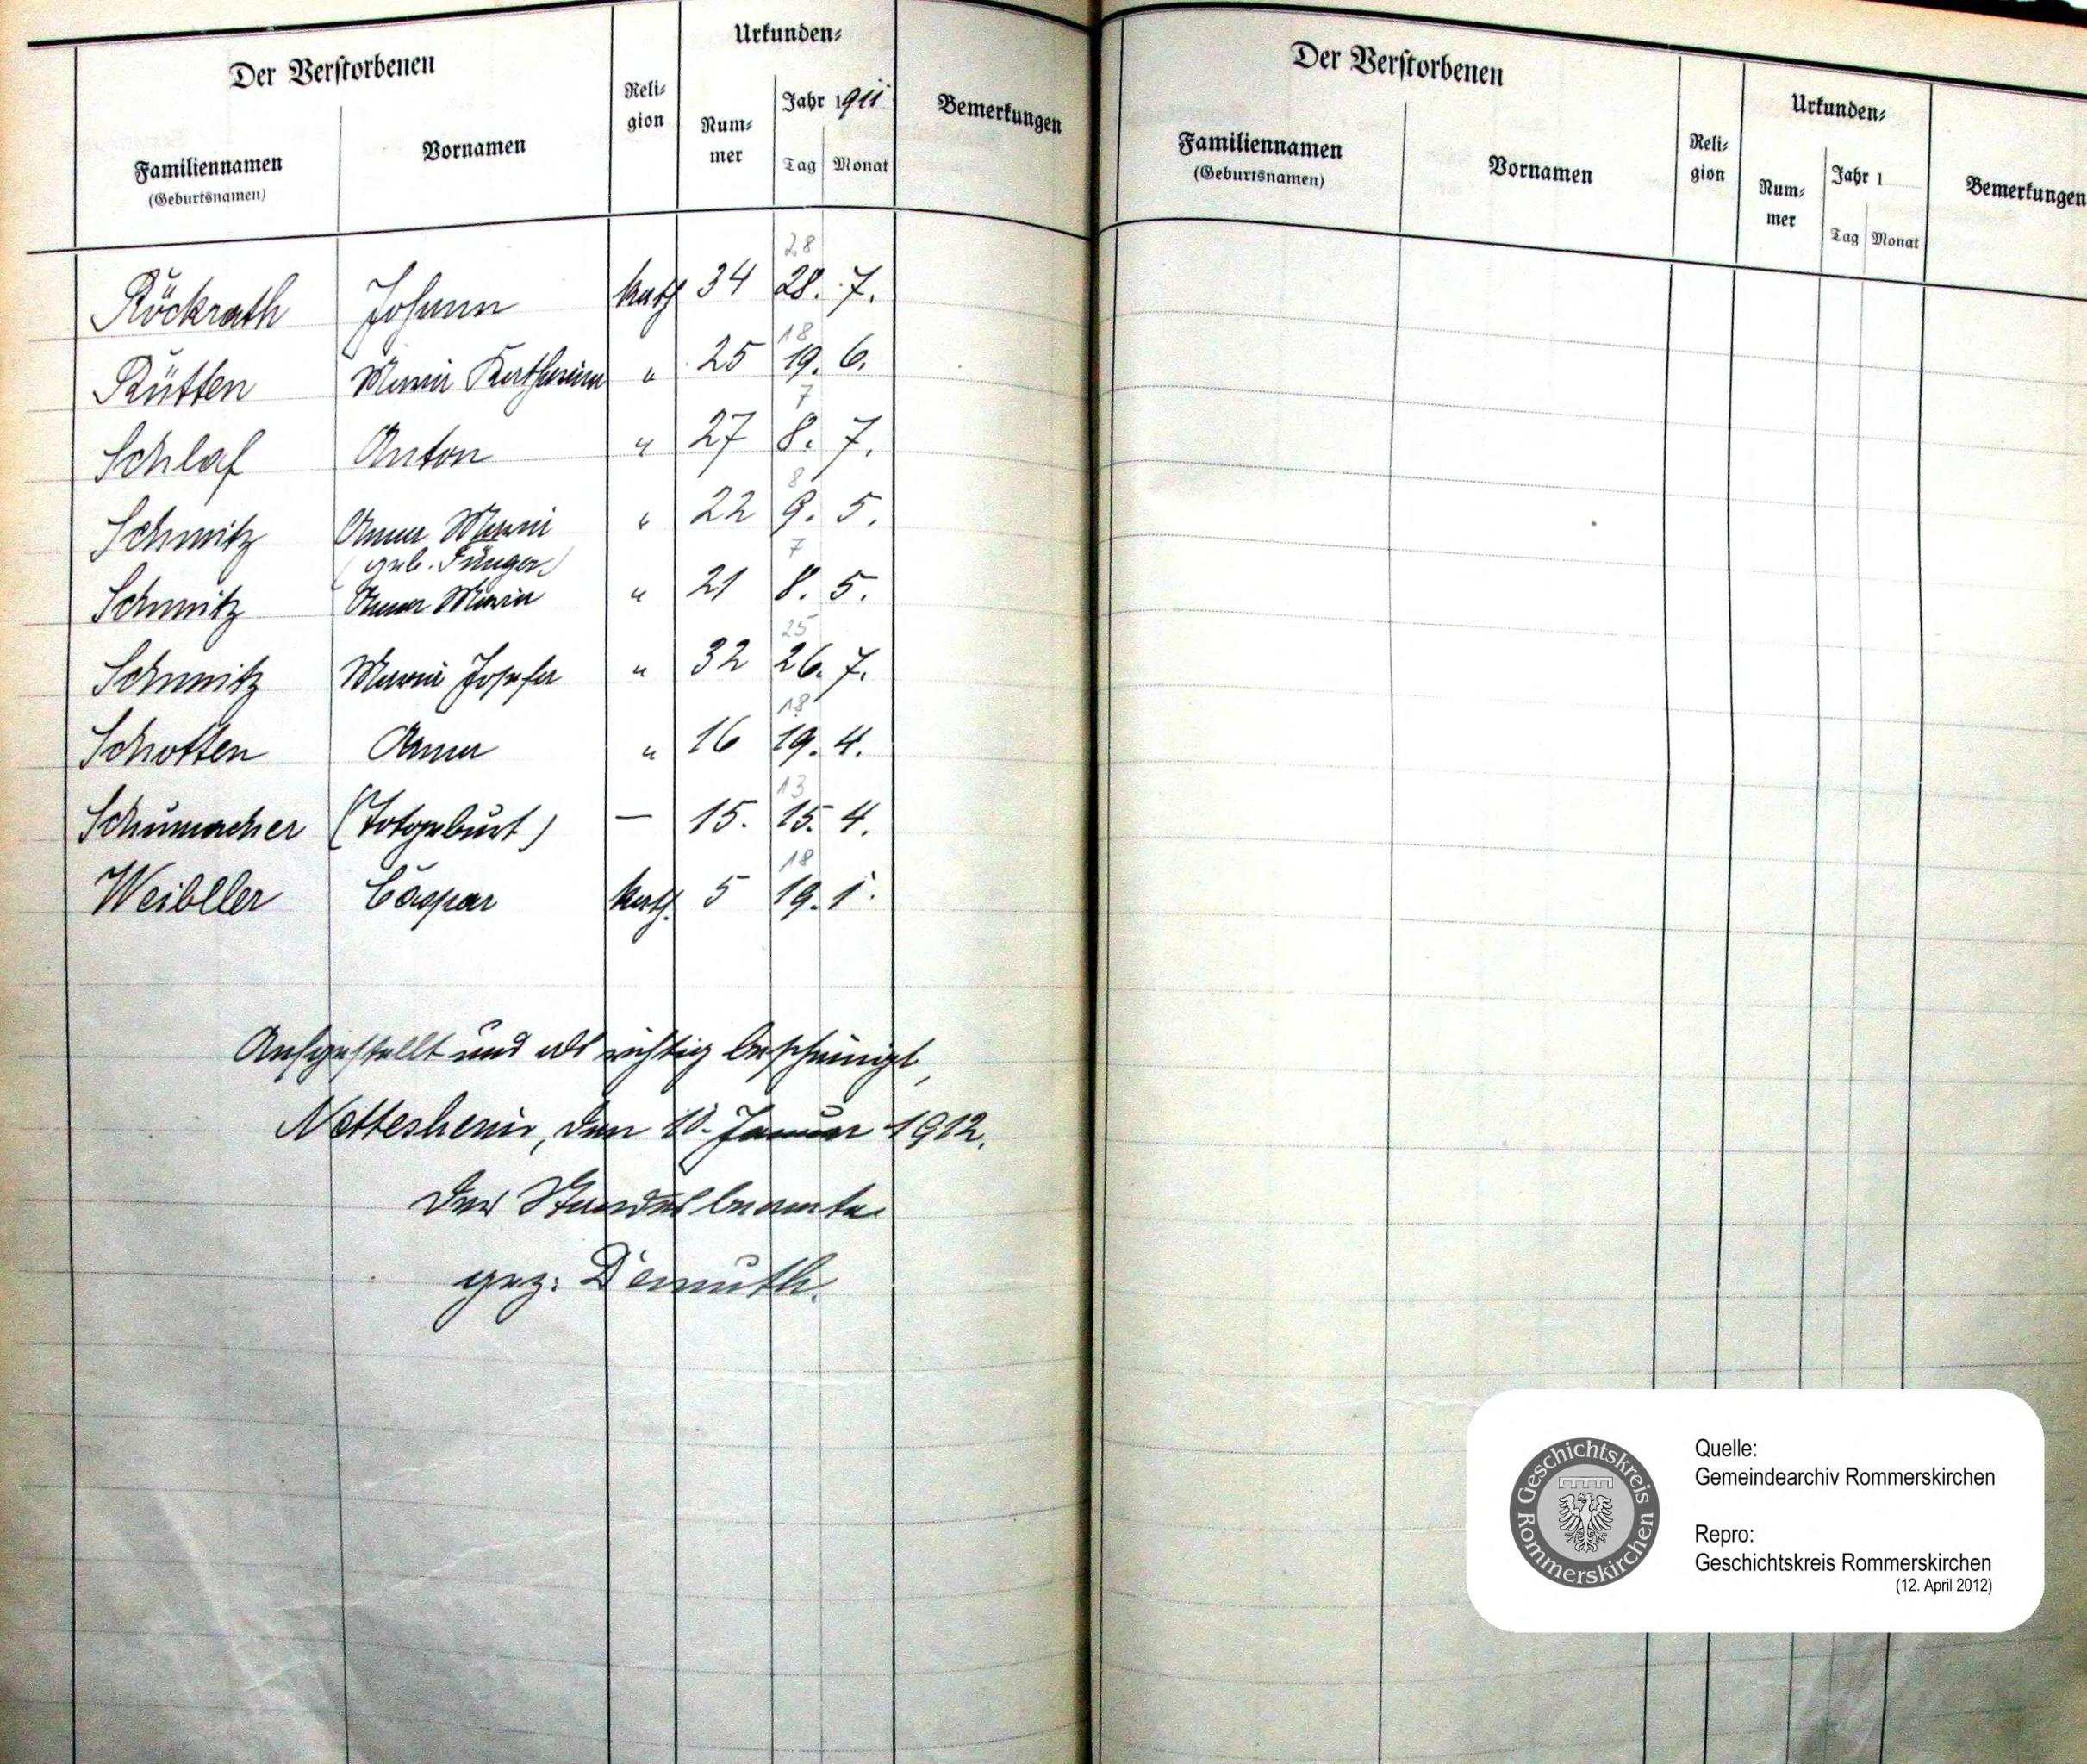 Der Verstorbenen
Urkunden-
Familiennamen
(Geburtsnamen)
Vornamen
Reli-
gion
Num-
mer
Jahr 1911
Tag Monat
Bemerkungen
28
Röckrath Johann kath 34 28. 7.
18
Rütten Maria Katharina " 25 19. 6.
7
Schlaf Anton " 27 8. 7.
8
Schmitz Anna Maria " 22 9. 5.
(geb. Fünger)
7
Schmitz Anna Maria " 21 8. 5.
25
Schmitz Maria Josefa " 32 26. 7.
18
Schotten Anna " 16 19. 4.
13
Schumacher (Totgeburt) — 15. 15. 4.
18
Weibller Caspar kath. 5 19. 1.
Aufgestellt und als richtig bescheinigt,
Nettesheim, den 10. Januar 1912.
Der Standesbeamte
gez. Demuth.
Der Verstorbenen
Urkunden-
Familiennamen
(Geburtsnamen)
Vornamen
Reli-
gion
Num-
mer
Jahr 1
Tag Monat
Bemerkungen
Geschichtskreis
Rommerskirchen
Quelle:
Gemeindearchiv Rommerskirchen
Repro:
Geschichtskreis Rommerskirchen
(12. April 2012)